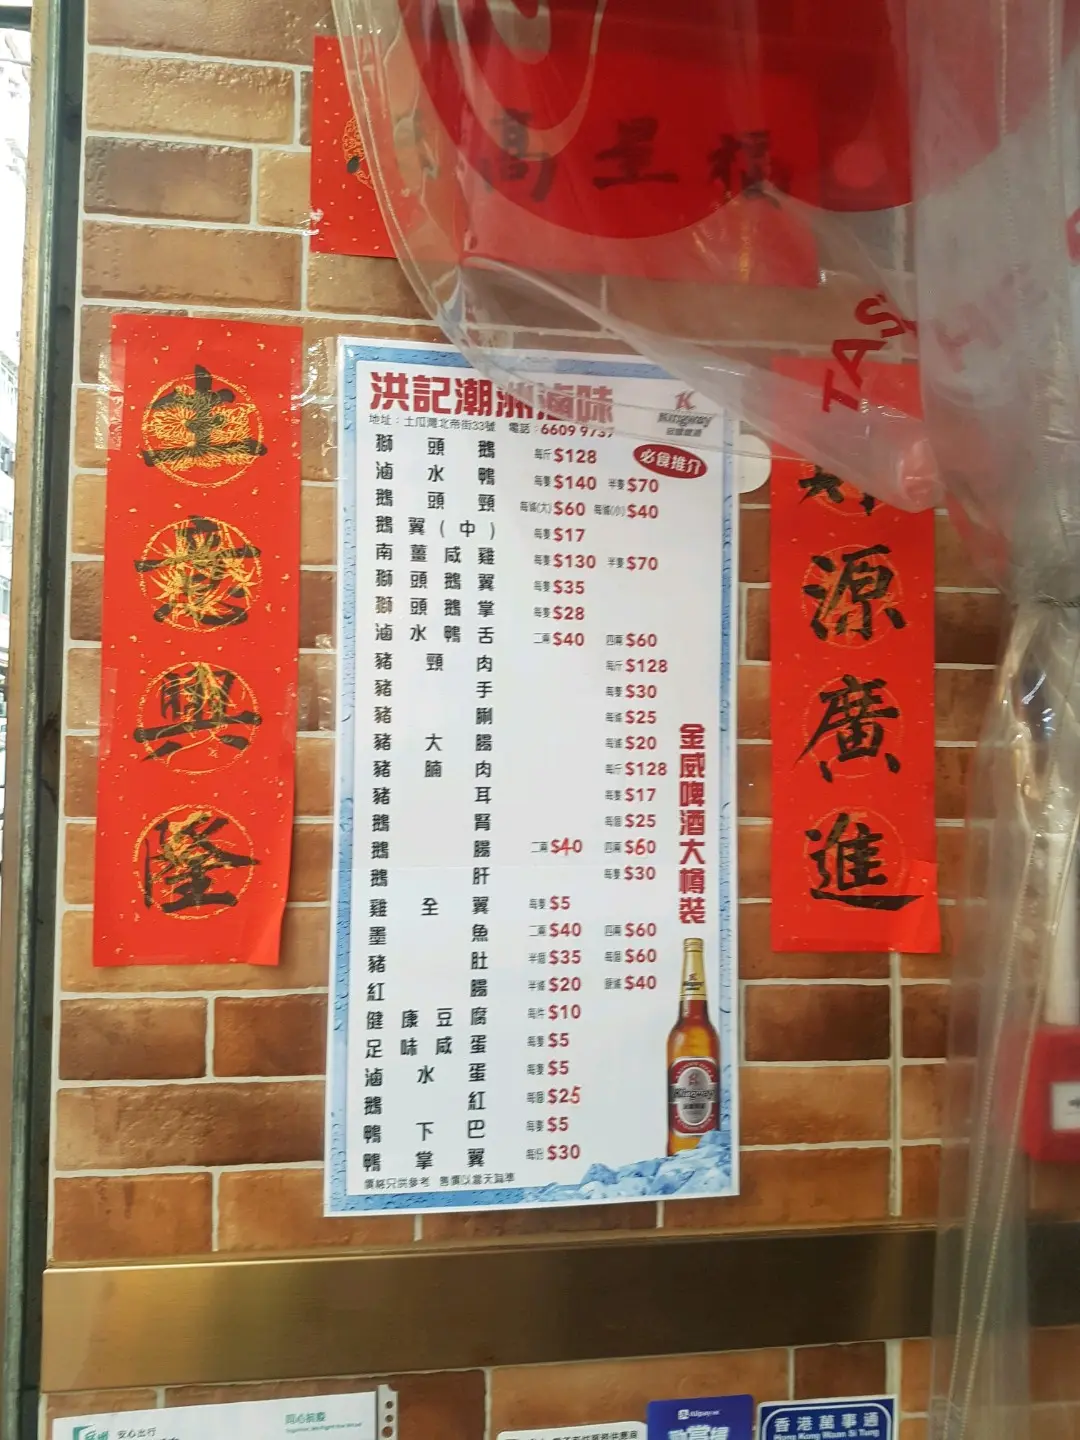 高呈福
TAS
生意興隆
源廣進
洪記潮洲滷味
K
Kingway
地址：土瓜灣北帝街33號 電話：6609 9737
必食推介
獅頭鵝 每斤 $128
滷水鴨 每隻 $140 半隻 $70
鵝頭頸 每條(大) $60 每條(小) $40
鵝翼(中) 每隻 $17
南薑咸雞 每隻 $130 半隻 $70
獅頭鵝翼 每隻 $35
獅頭鵝掌 每隻 $28
滷水鴨舌 二両 $40 四両 $60
豬頸肉 每斤 $128
豬手 每隻 $30
豬脷 每條 $25
豬大腸 每條 $20
豬腩肉 每斤 $128
豬耳 每隻 $17
鵝腎 每個 $25
鵝腸 二両 $40 四両 $60
鵝肝 每隻 $30
雞全翼 每隻 $5
墨魚 二両 $40 四両 $60
豬肚 半個 $35 每個 $60
紅腸 半條 $20 $40
健康豆腐 每件 $10
足味咸蛋 每隻 $5
滷水蛋 每隻 $5
鵝紅 每個 $25
鴨下巴 每隻 $5
鴨掌翼 每份 $30
價格只供參考 售價以當天為準
金威啤酒大樽裝
Kingway
安心出行
同心抗疫
香港萬事通
Hong Kong Maan Si Tung